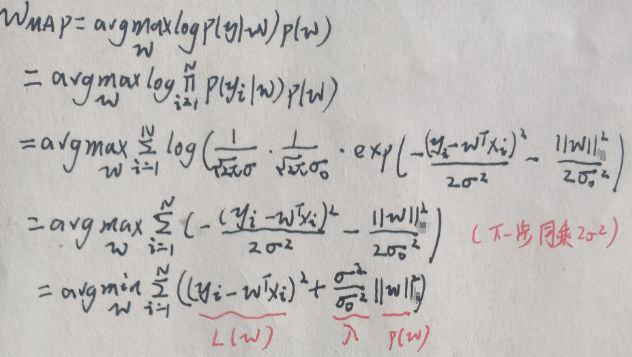 W_MAP = argmax_w log p(y|w) p(w)
= argmax_w log ∏_{i=1}^{N} p(y_i|w) p(w)
= argmax_w ∑_{i=1}^{N} log( 1/(√2π σ) · 1/(√2π σ_0) · exp( -(y_i - w^T x_i)^2 / 2σ^2 - ||w||^2 / 2σ_0^2 )
= argmax_w ∑_{i=1}^{N} ( -(y_i - w^T x_i)^2 / 2σ^2 - ||w||^2 / 2σ_0^2 ) (下一步同乘2σ^2)
= argmin_w ∑_{i=1}^{N} ( (y_i - w^T x_i)^2 + σ^2/σ_0^2 ||w||^2 )
L(w) λ P(w)